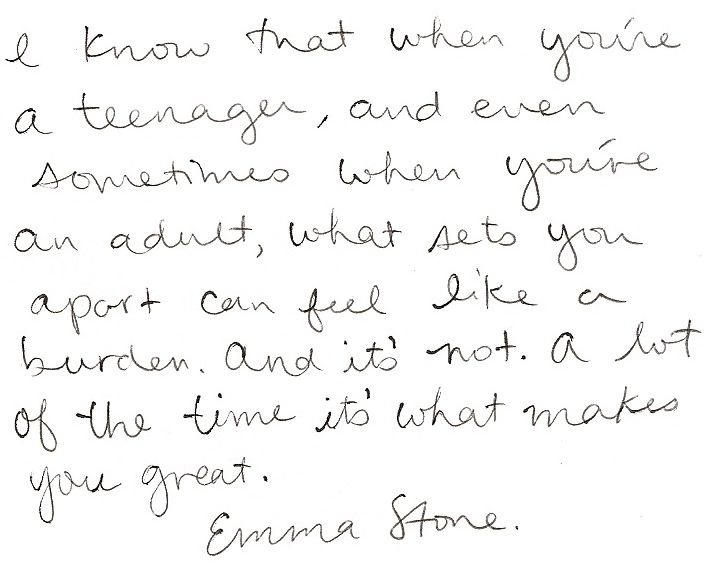 I know that when you're
a teenager, and even
sometimes when you're
an adult, what sets you
apart can feel like a
burden. And it's not. A lot
of the time it's what makes
you great.
Emma Stone.